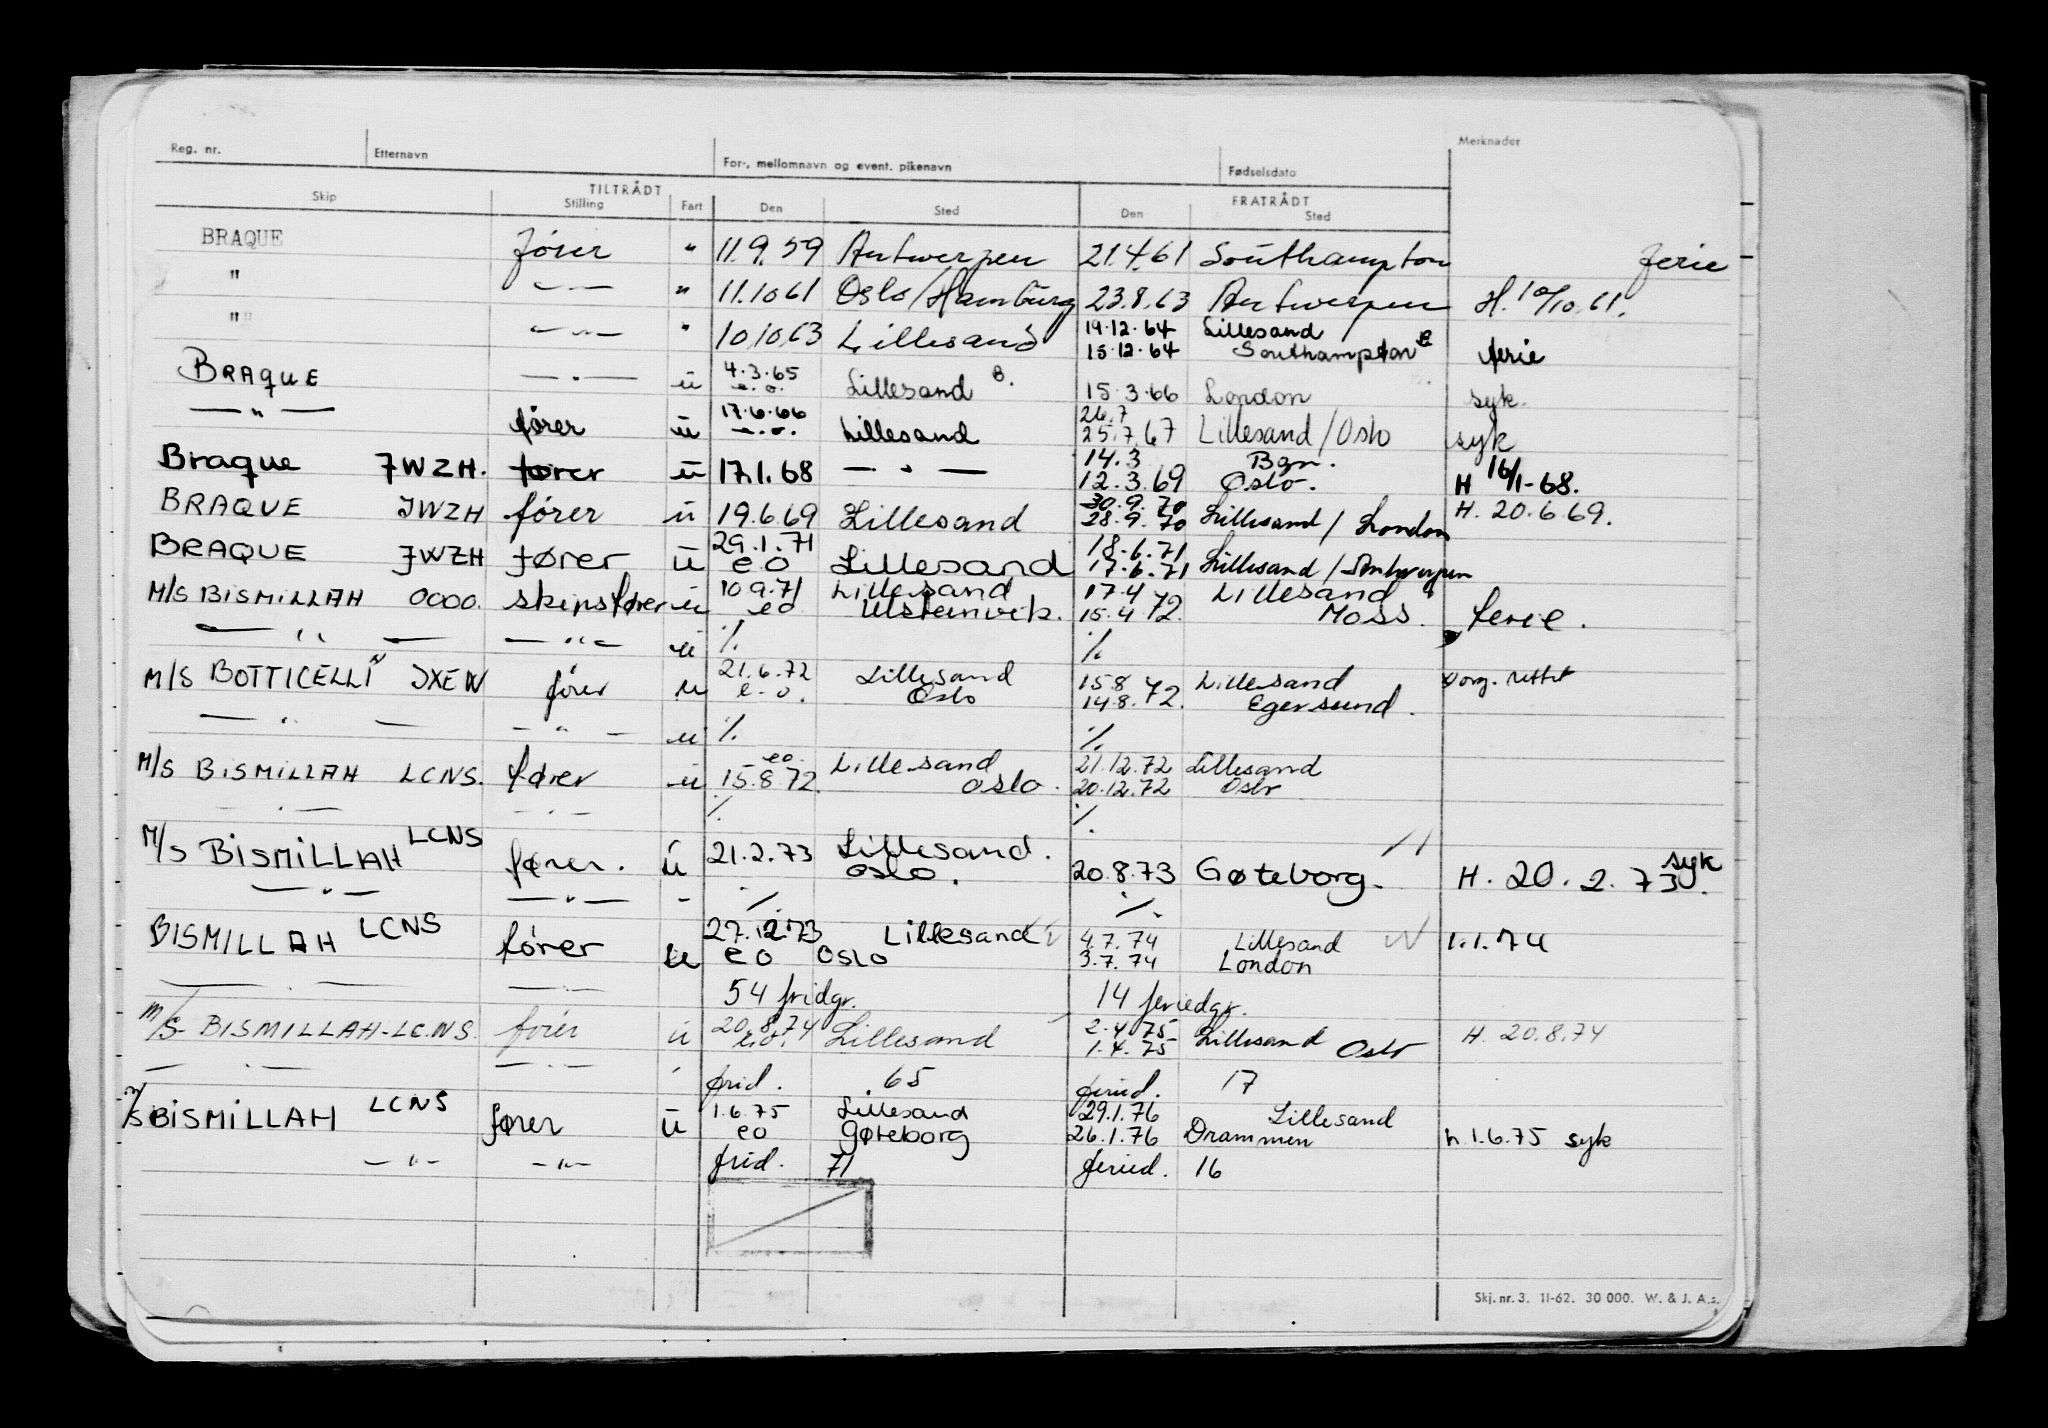 Reg. nr. Etternavn For-, mellomnavn og event. pikenavn Fødselsdato Merknader
TILTRÅDT FRATRÅDT
Skip Stilling Fart Den Sted Den Sted
BRAQUE fører " 11.9.59 Antwerpen 21.4.61 Southampton ferie
" — " — " 11.10.61 Oslo/Hamburg 23.8.63 Antwerpen H. 10/10.61.
" — " — " 10.10.63 Lillesand 19.12.64 Lillesand
15.12.64 Southampton ferie
BRAQUE — " — u 4.3.65
e.o. Lillesand B. 15.3.66 London syk.
— " — fører u 17.6.66
e.o. Lillesand 26.7
25.7.67 Lillesand/Oslo syk
Braque JWZH. fører u 17.1.68 — " — 14.3 Bgn.
12.3.69 Oslo. H 16/1-68.
BRAQUE JWZH fører u 19.6.69 Lillesand 30.9.70
28.9.70 Lillesand/London H. 20.6.69.
BRAQUE JWZH fører u 29.1.71
eo Lillesand 18.6.71
17.6.71 Lillesand/Antwerpen
M/S BISMILLAH OOOO. skipsfører u 10.9.71 Lillesand 17.4 Lillesand
eo Ulsteinvik. 15.4.72. Moss. ferie.
— " — — " — u ·/. ·/.
M/S BOTTICELLI JXEW fører u 21.6.72 Lillesand 15.8 Lillesand
e.o. Oslo 14.8.72. Egersund.
— " — — " — u ·/. ·/.
M/S BISMILLAH LCNS. fører u eo Lillesand 21.12.72 Lillesand
15.8.72. Oslo. 20.12.72 Oslo
— " — — " — ·/. ·/.
M/S BISMILLAH LCNS fører. u 21.2.73 Lillesand.
Oslo. 20.8.73 Gøteborg. H. 20.2.73. syk
— " — — " — - ·/. ·/.
BISMILLAH LCNS fører u 27.12.73 Lillesand 4.7.74 Lillesand 1.1.74
eo Oslo 3.7.74 London
— " — — " — 54 fridgr. 14 feriedgr.
M/S BISMILLAH-LCNS. fører u 20.8.74
e.o. Lillesand 2.4.75 Lillesand
1.4.75 Oslo H. 20.8.74
— " — — " — frid. 65 feried. 17
M/S BISMILLAH LCNS fører u 1.6.75 Lillesand 29.1.76 Lillesand
eo Gøteborg 26.1.76 Drammen h. 1.6.75 syk
— " — — " — frid. 71 feried. 16
Skj. nr. 3. 11-62. 30 000. W. & J. A.s.